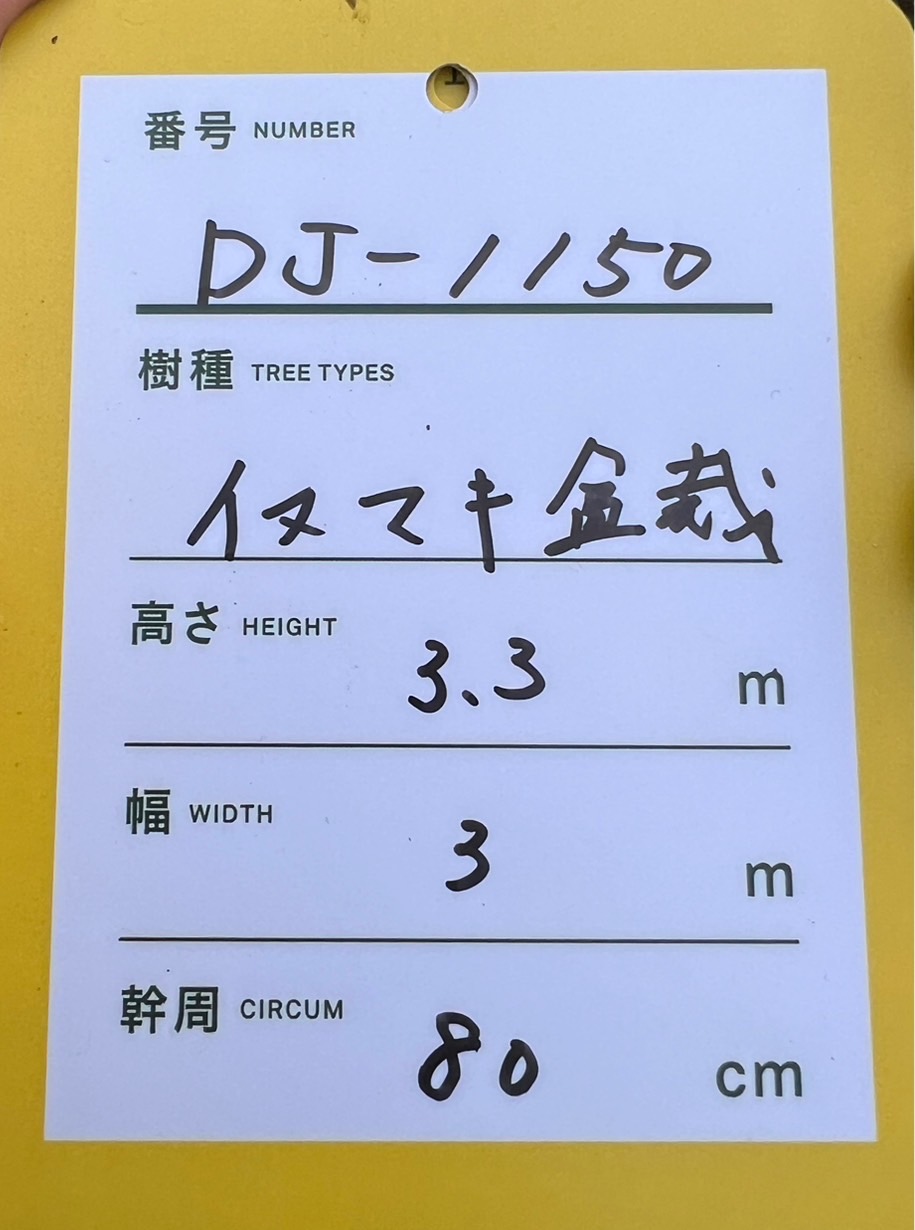 番号 NUMBER
DJ-1150
樹種 TREE TYPES
イヌマキ盆栽
高さ HEIGHT
3.3 m
幅 WIDTH
3 m
幹周 CIRCUM
80 cm